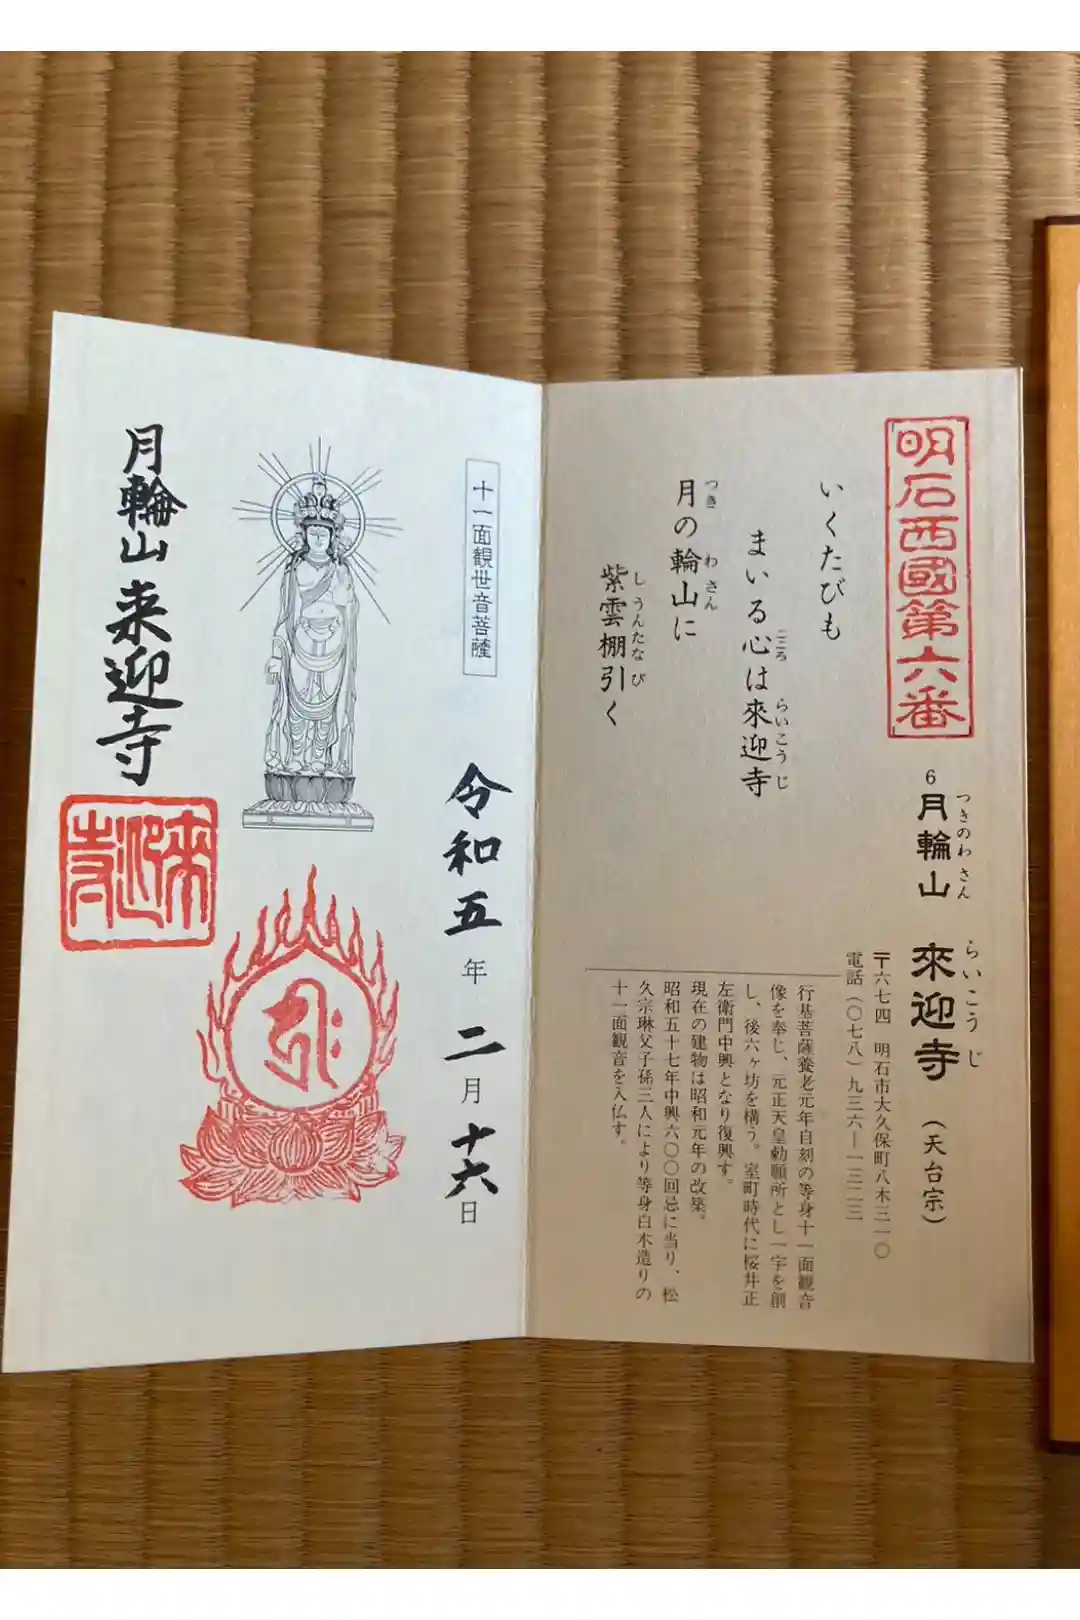 明石西國第六番
6 月輪山 來迎寺 (天台宗)
つきのわさん らいこうじ
〒六七四 明石市大久保町八木三一〇
電話(〇七八)九三六—一三二三
いくたびも
まいる心は來迎寺
こころ らいこうじ
月の輪山に
つき わさん
紫雲棚引く
しうんたなび
行基菩薩養老元年自刻の等身十一面観音
像を奉じ、元正天皇勅願所とし一宇を創
し、後六ヶ坊を構う。室町時代に桜井正
左衛門中興となり復興す。
現在の建物は昭和元年の改築。
昭和五十七年中興六〇〇回忌に当り、松
久宗琳父子孫三人により等身白木造りの
十一面観音を入仏す。
十一面観世音菩薩
令和五年 二月十六日
月輪山 来迎寺
來迎寺